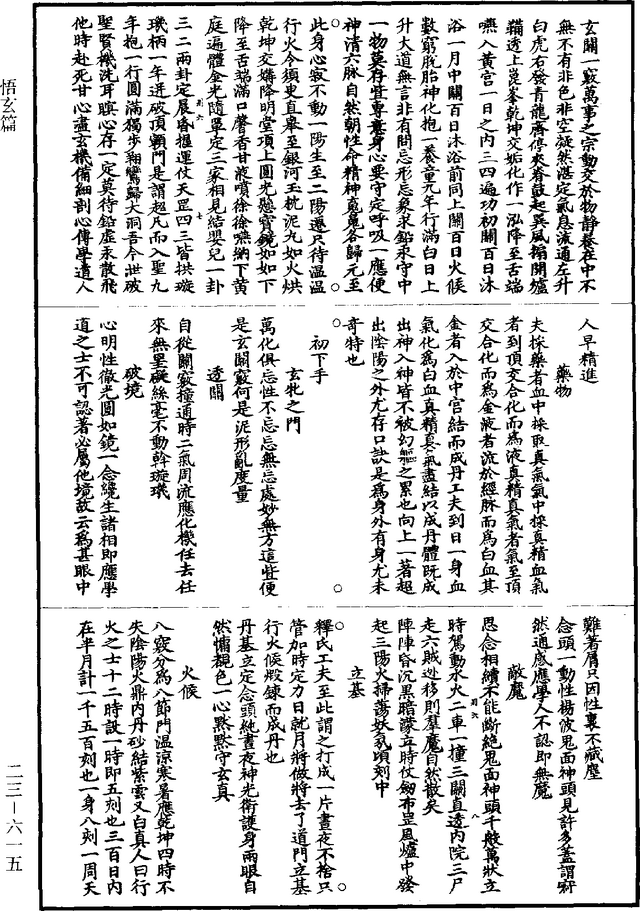 玄關一竅萬事之宗動交於物靜養在中不
無不有非色非空凝然湛定氣息流通左升
白虎右發青龍臍停夾脊鼓起巽風搧開爐
鞴透上崑峯乾坤交姤化作一泓降至舌端
嚥入黃宮一日之內三四遍功初關百日沐
浴一月中關百日沐浴前同上關百日火候
數窮脫胎神化抱一養童九年行滿白日上
升大道無言非有問忘形忘象求鉛汞守中
一物莫存甞專意身心要守定呼吸一應便
神清六脉自然朝性命精神魂魄各歸元至
此身心寂不動一陽生至二陽遷只待溫溫
行火令須臾直舉至銀河玉枕泥丸如火烘
乾坤交媾降明堂項上圓光懸寶鏡如如下
降至舌端滿口馨香甘液噴徐徐嚥納下黃
庭遍體金光隨單定三家相見結嬰兒一卦
三二兩卦定晨昏搵運仗天罡四三皆拱璇
璣柄一年迸破頂顖門是謂超凡而入聖九
年抱一行圓滿獨步翔鸞歸大洞吾今泄破
聖賢機洗耳瞋心存一定莫待鉛虛汞散飛
他時赴死甘心盡玄機備細剖心傳學道人
人早精進
藥物
夫採藥者血中採取真氣氣中採真精血氣
者到頂交合化而爲液真精真氣者氣至頂
交合化而爲金液者流於經脉而爲白血其
金者入於中宮結而成丹工夫到日一身血
氣化爲白血真精真氣盡結以成丹體既成
出神入神皆不被幻軀之累也向上一著超
出陰陽之外尤存口訣是爲身外有身尤未
奇特也
初下手
玄牝之門
萬化俱忘性不忘忘無忘處妙無方這些便
是玄關竅何是泥形亂度量
透關
自從關竅撞通時二氣周流應化機任去任
來無罣礙絲毫不動斡璇璣
破境
心明性徹光圓如鏡一念纔生諸相即應學
道之士不可認著必屬他境故云爲甚眼中
難著屑只因性裏不藏塵
念頭一動性楊彼鬼面神頭見許多蓋謂寂
然通感應學人不認即無魔
敵魔
思念相續不能斷絕鬼面神頭千般萬狀立
時駕動水火二車一撞三關直透内院三尸
走六賊迯移則羣魔自然散矣
陣陣昏沉黑暗濛立時仗劍布罡風爐中發
起三陽火掃蕩妖氛頃刻中
立基
釋氏工夫至此謂之打成一片晝夜不捨只
管加時定力日就月將做將去了道門立基
行火候煅鍊而成丹也
丹基立定念頭純晝夜神光衛護身兩眼自
然慵覩色一心黙黙守玄真
火候
八竅分爲八節門溫凉寒暑應乾坤四時不
失陰陽火鼎内丹砂結紫雲又白真人曰行
火之士十二時設一時即五刻也三百日内
在半月計一千五百刻也一身八刻一周天
悟玄篇
二三—六一五